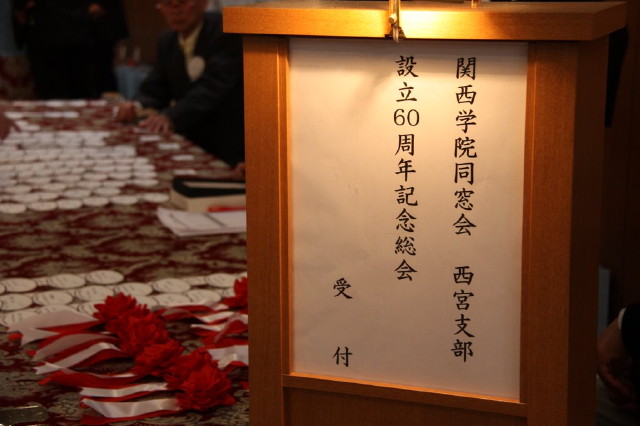 関西学院同窓会 西宮支部
設立60周年記念総会
受付